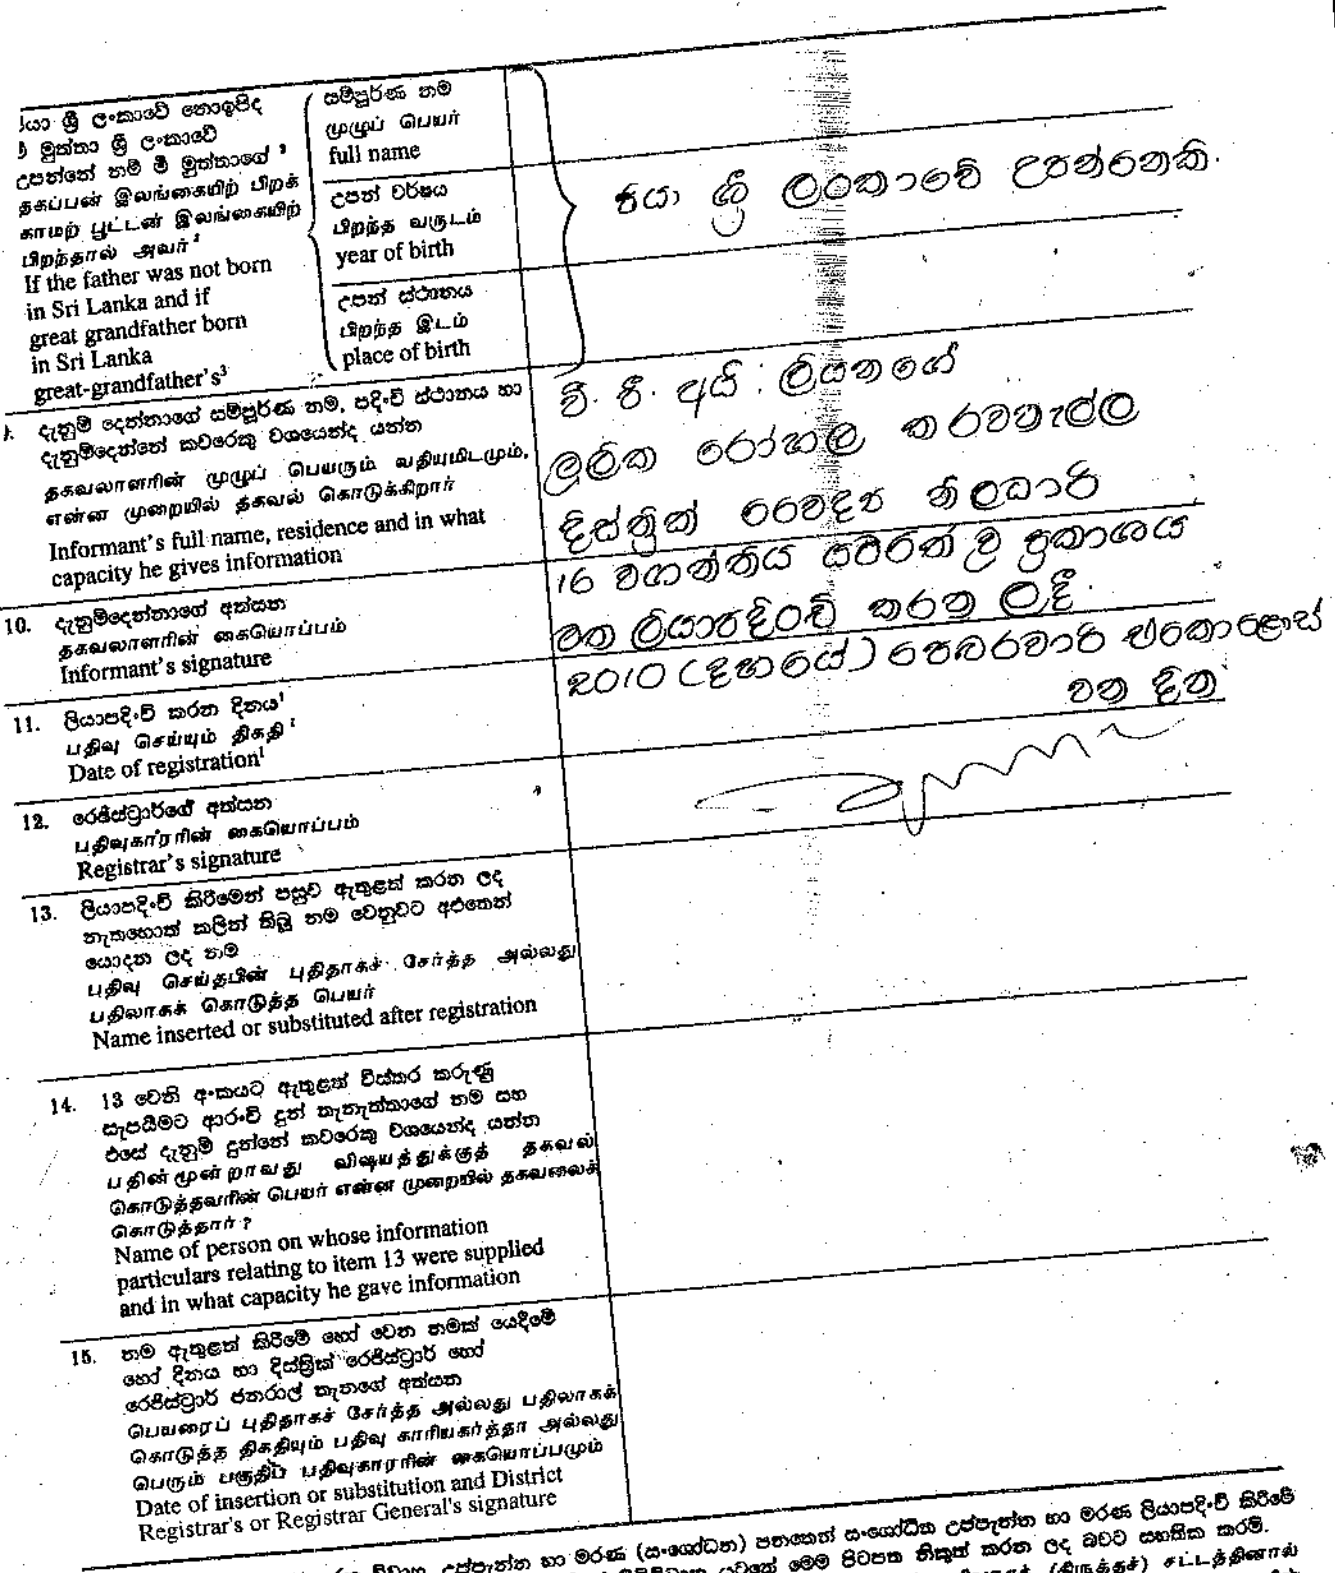 ශ්‍රී ලංකාවේ නොඉපිද
මුත්තා ශ්‍රී ලංකාවේ
උපන්නේ නම් මී මුත්තාගේ ³
தகப்பன் இலங்கையிற் பிறக்
காமற் பூட்டன் இலங்கையிற்
பிறந்தால் அவர்
If the father was not born
in Sri Lanka and if
great grandfather born
in Sri Lanka
great-grandfather's³
සම්පූර්ණ නම
முழுப் பெயர்
full name
උපන් වර්ෂය
பிறந்த வருடம்
year of birth
උපන් ස්ථානය
பிறந்த இடம்
place of birth
පියා ශ්‍රී ලංකාවේ උපන්නෙකි.
දැනුම් දෙන්නාගේ සම්පූර්ණ නම, පදිංචි ස්ථානය හා
දැනුම්දෙන්නේ කවරෙකු වශයෙන්ද යන්න
தகவலாளரின் முழுப் பெயரும் வதியுமிடமும்,
என்ன முறையில் தகவல் கொடுக்கிறார்
Informant's full name, residence and in what
capacity he gives information
අයි. ලියනගේ
මූලික රෝහල කරවනැල්ල
දිස්ත්‍රික් වෛද්‍ය නිලධාරි
10. දැනුම්දෙන්නාගේ අත්සන
தகவலாளரின் கையொப்பம்
Informant's signature
16 වගන්තිය යටතේ වූ ප්‍රකාශය
මත ලියාපදිංචි කරන ලදී.
11. ලියාපදිංචි කරන දිනය¹
பதிவு செய்யும் திகதி ¹
Date of registration¹
2010 (දහයේ) පෙබරවාරි එකොළොස්
වන දින
12. රෙජිස්ට්‍රාර්ගේ අත්සන
பதிவுகாரரின் கையொப்பம்
Registrar's signature
13. ලියාපදිංචි කිරීමෙන් පසුව ඇතුළත් කරන ලද
නැතහොත් කලින් තිබූ නම වෙනුවට අළුතෙන්
යොදන ලද නම
பதிவு செய்தபின் புதிதாகச் சேர்த்த அல்லது
பதிலாகக் கொடுத்த பெயர்
Name inserted or substituted after registration
14. 13 වෙනි අංකයට ඇතුළත් විස්තර කරුණු
සැපයීමට ආරංචි දුන් තැනැත්තාගේ නම සහ
එසේ දැනුම් දුන්නේ කවරෙකු වශයෙන්ද යන්න
பதின்மூன்றாவது விஷயத்துக்குத் தகவல்
கொடுத்தவரின் பெயர் என்ன முறையில் தகவலைக்
கொடுத்தார் ?
Name of person on whose information
particulars relating to item 13 were supplied
and in what capacity he gave information
15. නම ඇතුළත් කිරීමේ හෝ වෙන නමක් යෙදීමේ
හෝ දිනය හා දිස්ත්‍රික් රෙජිස්ට්‍රාර් හෝ
රෙජිස්ට්‍රාර් ජනරාල් තැනගේ අත්සන
பெயரைப் புதிதாகச் சேர்த்த அல்லது பதிலாகக்
கொடுத்த திகதியும் பதிவு காரியகர்த்தா அல்லது
பெரும் பகுதிப் பதிவுகாரரின் கையொப்பமும்
Date of insertion or substitution and District
Registrar's or Registrar General's signature
උප්පැන්න හා මරණ (සංශෝධන) පනතෙන් සංශෝධිත උප්පැන්න හා මරණ ලියාපදිංචි කිරීමේ
යටතේ මෙම පිටපත නිකුත් කරන ලද බවට සහතික කරමි.
(திருத்தச்) சட்டத்தினால்